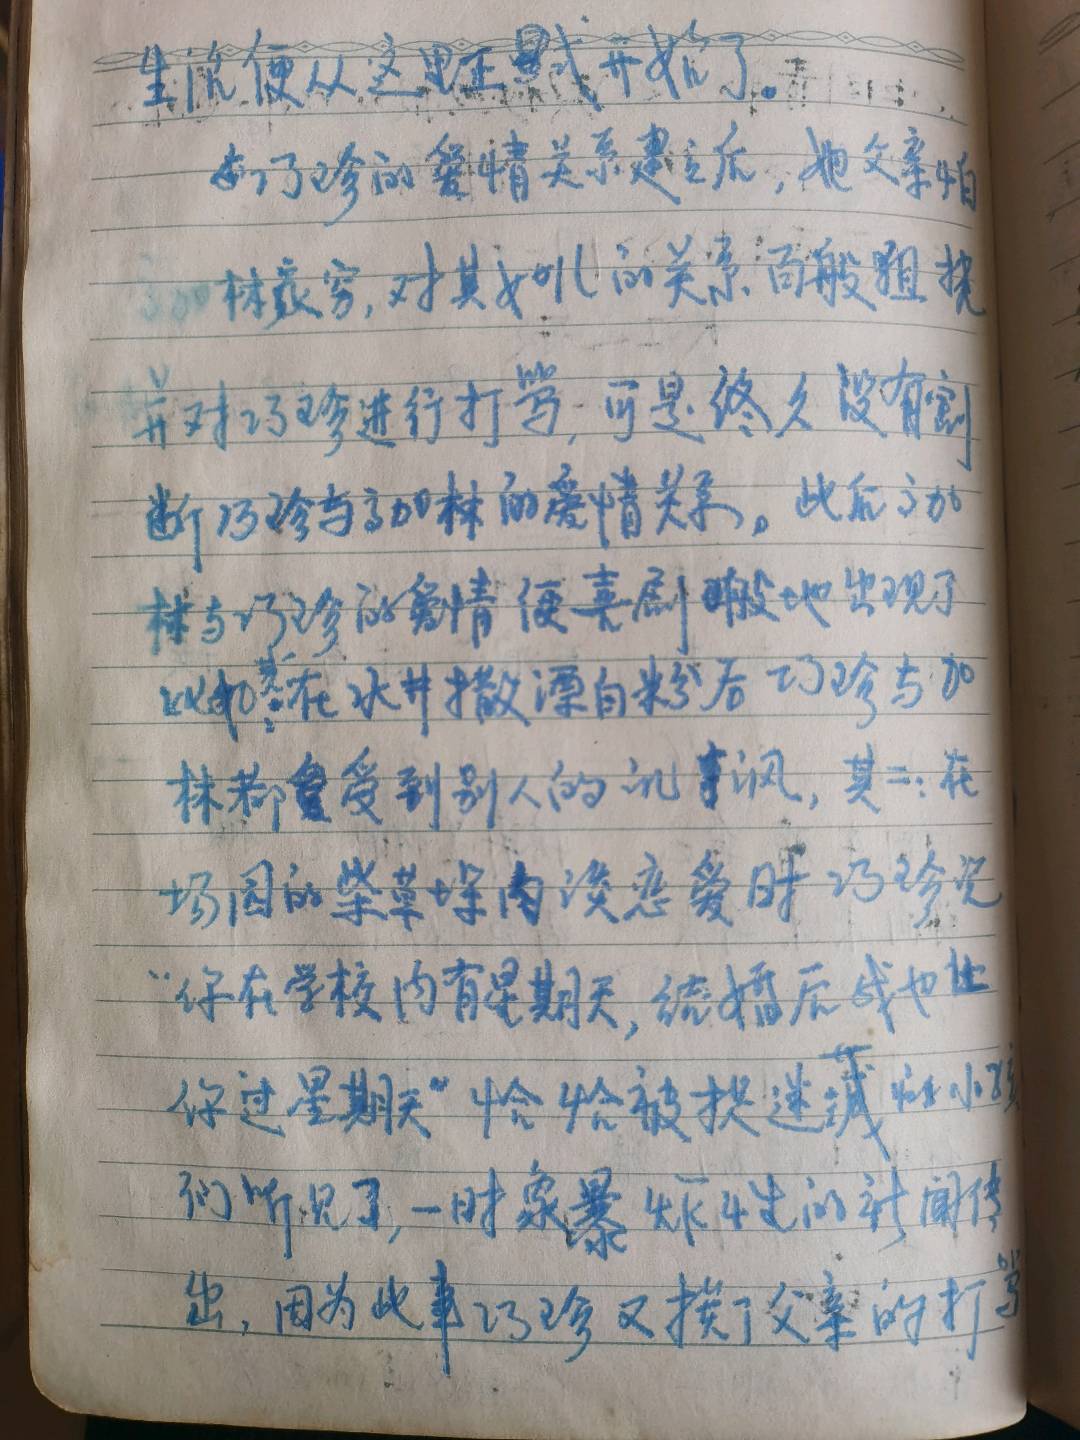 生活便从这里正式开始了。
与巧珍的爱情关系建立后，她父亲怕
加林家穷，对其女儿的关系百般阻挠
并对巧珍进行打骂，可是终久没有割
断巧珍与高加林的爱情关系。此后高加
林与巧珍的爱情便喜剧般地出现了
其一：在水井撒漂白粉后巧珍与加
林都受到别人的讥讽，其二：在
场园的柴草垛内谈恋爱时巧珍说
“你在学校内有星期天，结婚后我也让
你过星期天”恰恰被捉迷藏的小孩
们听见了，一时象暴炸性的新闻传
出，因为此事巧珍又挨了父亲的打骂